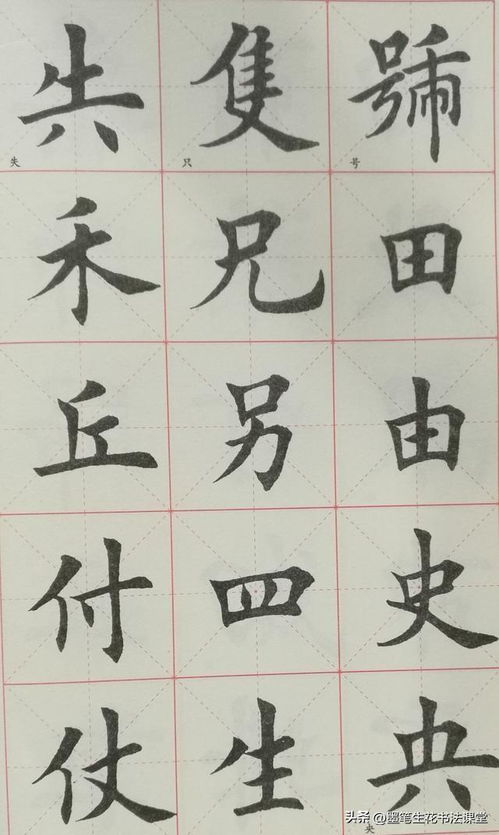 號
号
田
由
史
央
央
隻
只
兄
另
四
生
失
失
禾
丘
付
仗
头条 @墨笔生花书法课堂